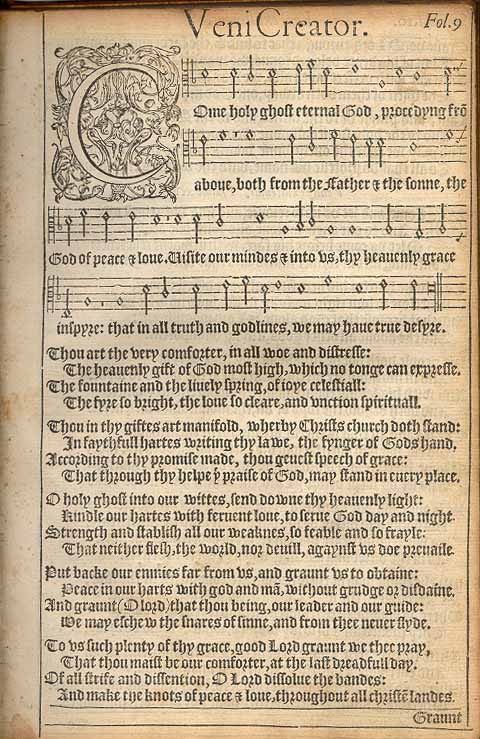 Veni Creator.
Fol. 9
COme holy ghost eternal God, procedyng frō
aboue, both from the Father & the sonne, the
God of peace & loue. Uisite our mindes & into vs, thy heauenly grace
inspyre: that in all truth and godlines, we may haue true desyre.
Thou art the very comforter, in all woe and distresse:
The heauenly gift of God most high, which no tonge can expresse.
The fountaine and the liuely spring, of ioye celestiall:
The fyre so bright, the loue so cleare, and vnction spirituall.
Thou in thy giftes art manifold, wherby Christs church doth stand:
In faythfull hartes writing thy lawe, the fynger of Gods hand.
According to thy promise made, thou geuest speech of grace:
That through thy helpe yͤ praise of God, may stand in euery place.
O holy ghost into our wittes, send downe thy heauenly light:
Kindle our hartes with feruent loue, to serue God day and night.
Strength and stablish all our weaknes, so feable and so frayle:
That neither flesh, the world, nor deuill, agaynst vs doe preuaile.
Put backe our enmies far from vs, and graunt vs to obtaine:
Peace in our harts with god and mā, without grudge or disdaine.
And graunt (O lord) that thou being, our leader and our guide:
We may eschew the snares of sinne, and from thee neuer slyde.
To vs such plenty of thy grace, good Lord graunt we thee pray,
That thou maist be our comforter, at the last dreadfull day.
Of all strife and dissention, O Lord dissolue the bandes:
And make the knots of peace & loue, throughout all christē landes.
Graunt